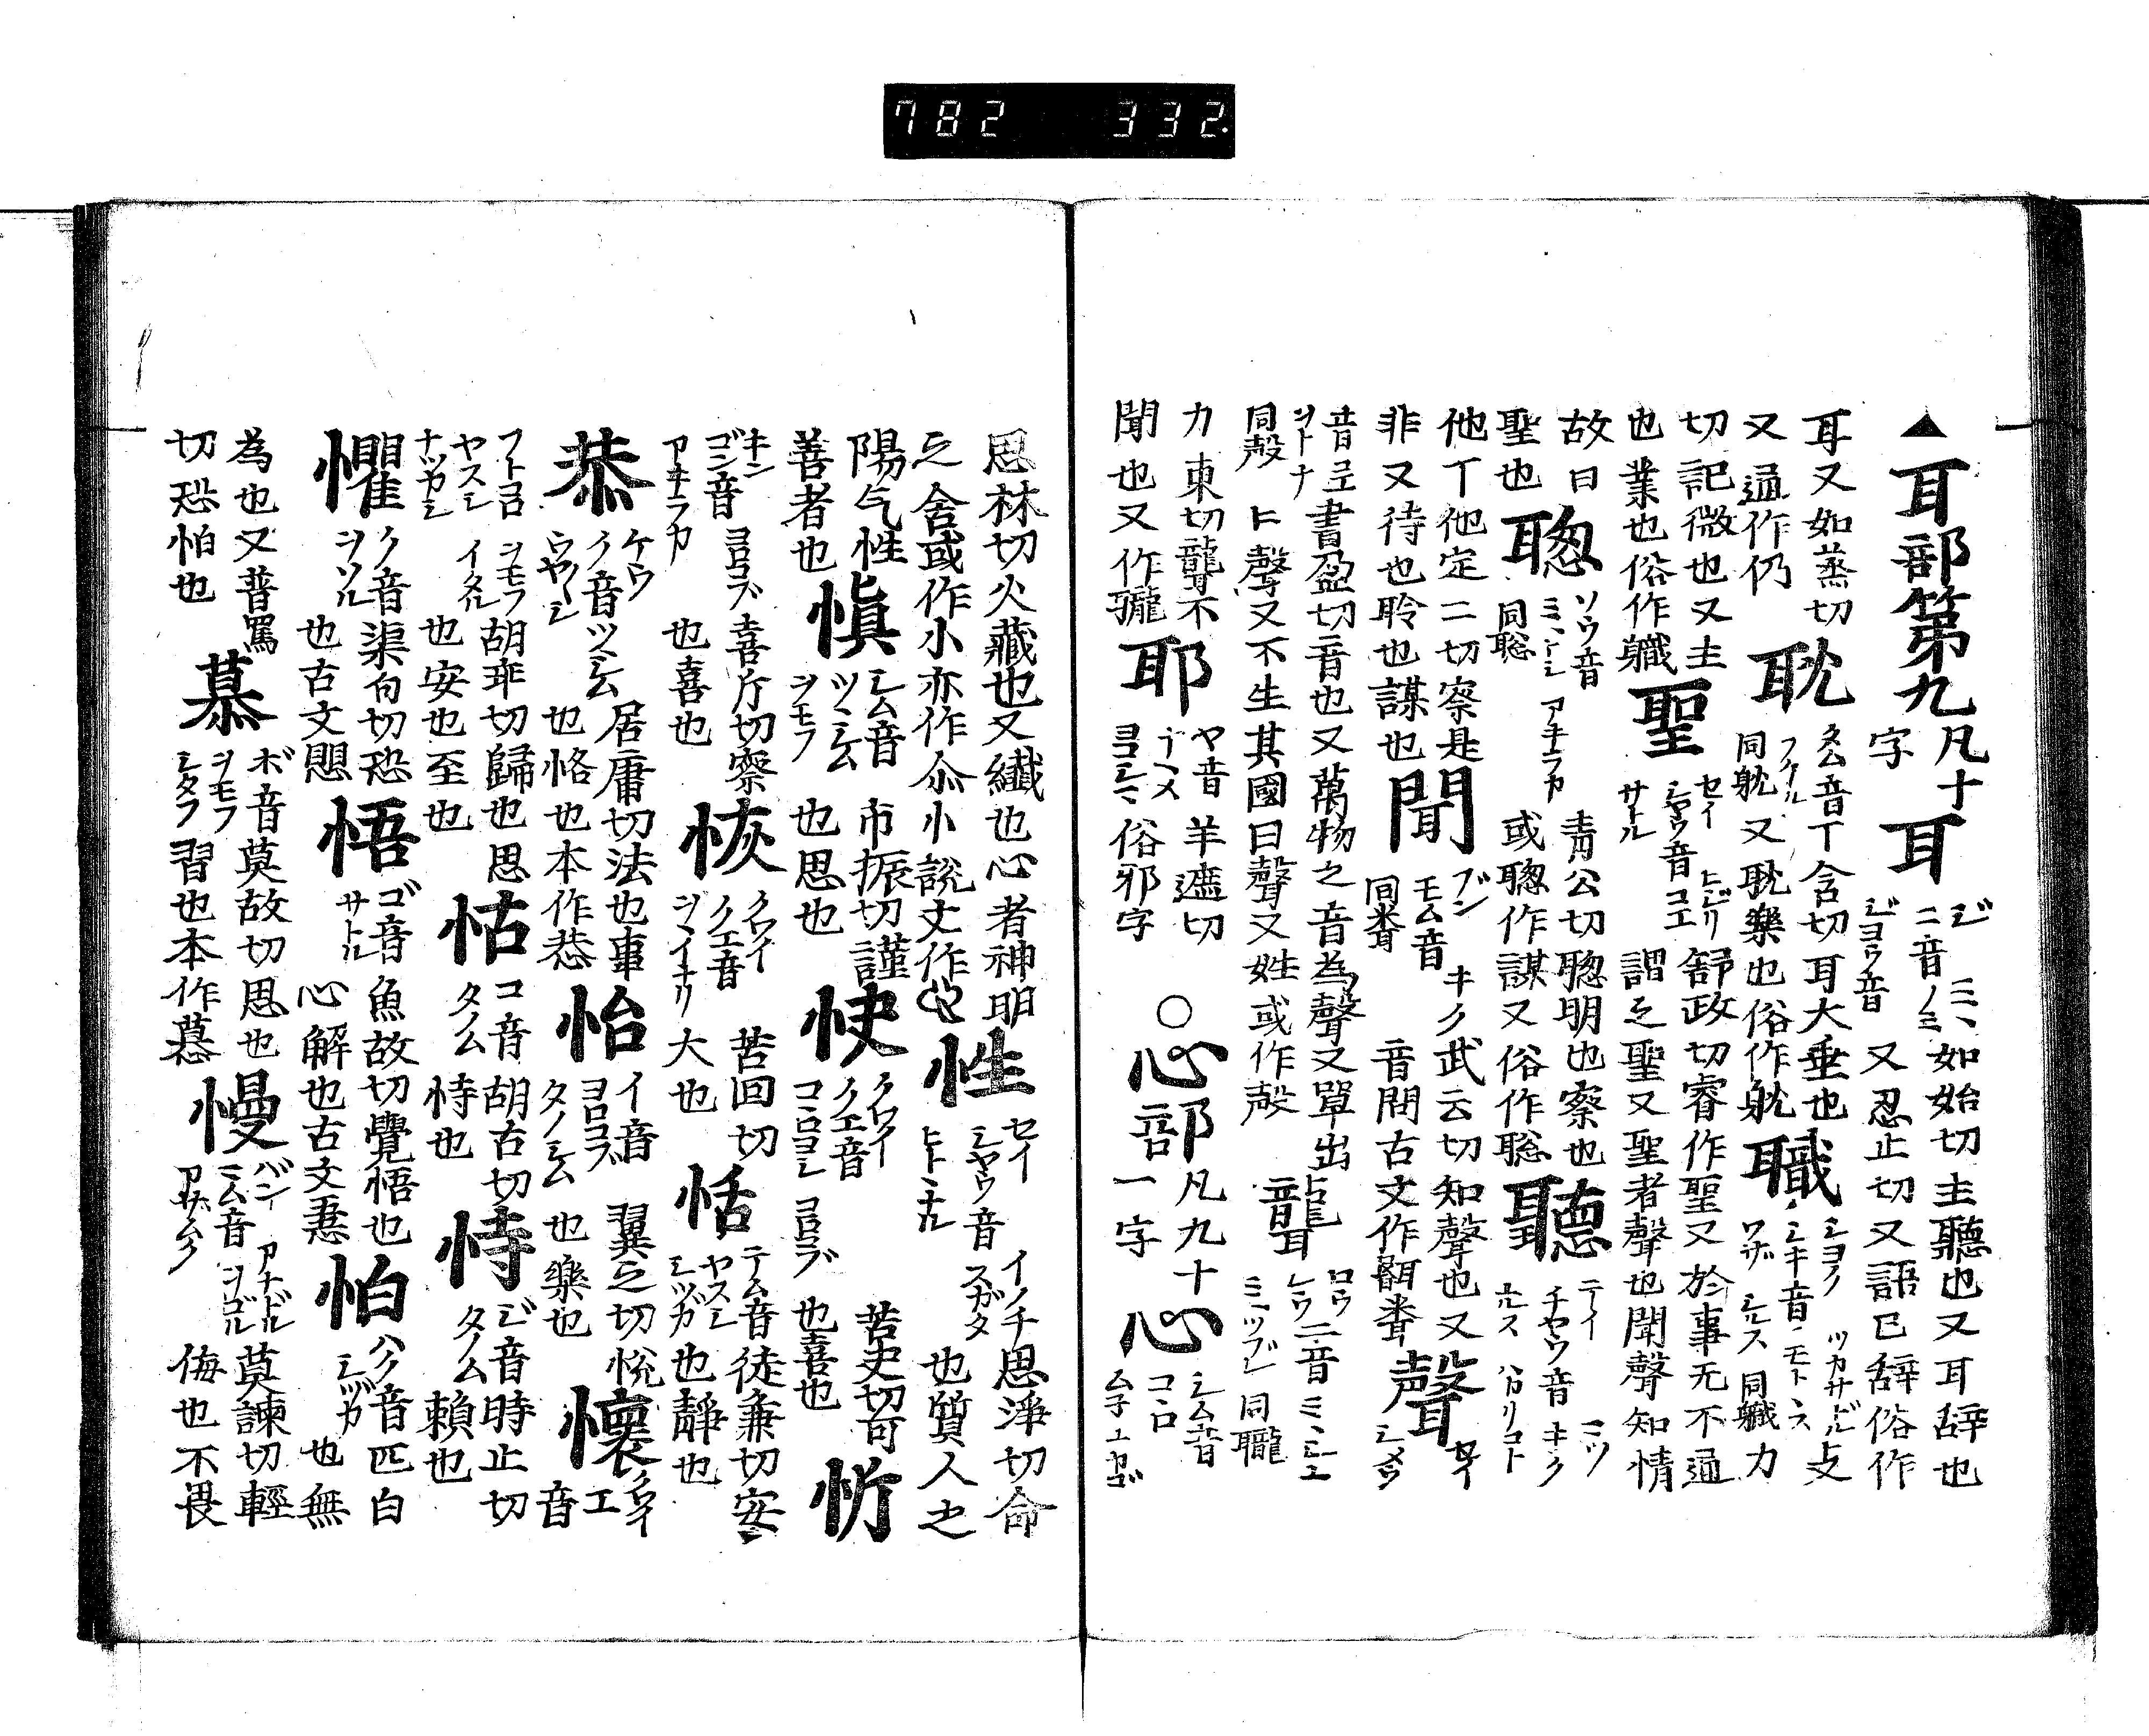 782 332
▲耳部第九 凡十字 耳 ジ ニ音 ミヽ ジヨウ音 如始切主聽也又耳辞也 又忍止切又語已辞俗作
耳又如蒸切又通作仍 耽 タム音 フケル 同躭 丁含切耳大垂也 又耽樂也俗作躭 職 シヨク シキ音 ツカサドル モト ワザ シルス 同軄
切記微也又主也業也俗作軄 聖 セイ シヤウ音 ヒジリ コエ サトル 舒政切睿作聖又於事无不通 謂之聖又聖者聲也聞聲知情
故曰聖也 聰 ソウ音 ミヽトシ アキラカ 同聡 青公切聰明也察也 或聰作謀又俗作聡 聽 テイ チヤウ音 キク ユルス ハカリコト
他丁他定二切察是非又待也聆也謀也 聞 ブン モム音 キク 武云切知聲也又 音問古文作 聲 セイ シヤウ
音 ヲトナ 同殸 書盈切音也又萬物之音為聲又單出 聲又不生其國曰聲又姓或作殸 聾 ロウ 二音 ミヽシヒ ミヽツブレ 同聾
力東切聾不聞也又作 耶 ヤ音 俗邪字 羊遮切 ○心部 凡九十一字 心 シム音 コヽロ
思林切火藏也又纎也心者神明之舍或作小亦作㣺小說文作 性 セイ シヤウ音 イノチ スガタ 思淨切命也質人之
陽气性善者也 愼 シム音 ツヽシム ヲモフ 市振切謹也思也 快 クワイ クエ音 コヽロヨシ ヨロコブ 苦史切可也喜也 忻
キン ゴン音 ヨロコブ アキラカ 喜斤切察也喜也 恢 クワイ クエ音 ヲヽイナリ 苦回切大也 恬 テム音 ヤスシ シヅカ 徒兼切安也靜也
恭 ケウ ク音 ツヽシム ウヤ〳〵シ 居庸切法也事也恪也本作恭 怡 イ音 ヨロコブ タノシム 翼之切悅也樂也 懷 クワイ エ音
フトコロ ヤスシ ナツカシ ヲモフ イタル 胡乖切歸也思也安也至也 怙 コ音 タノム 胡古切恃也 恃 ジ音 タノム 時止切賴也
懼 ク音 ヲソル 渠句切恐也古文愳 悟 ゴ音 サトル 魚故切覺悟也心解也古文 怕 ハク音 シヅカ 匹白 也無
為也又普罵切恐怕也 慕 ボ音 ヲモフ シタフ 莫故切思也習也本作慕 慢 バン ミム音 アナドル ヲゴル アザムク 莫諫切輕侮也不畏